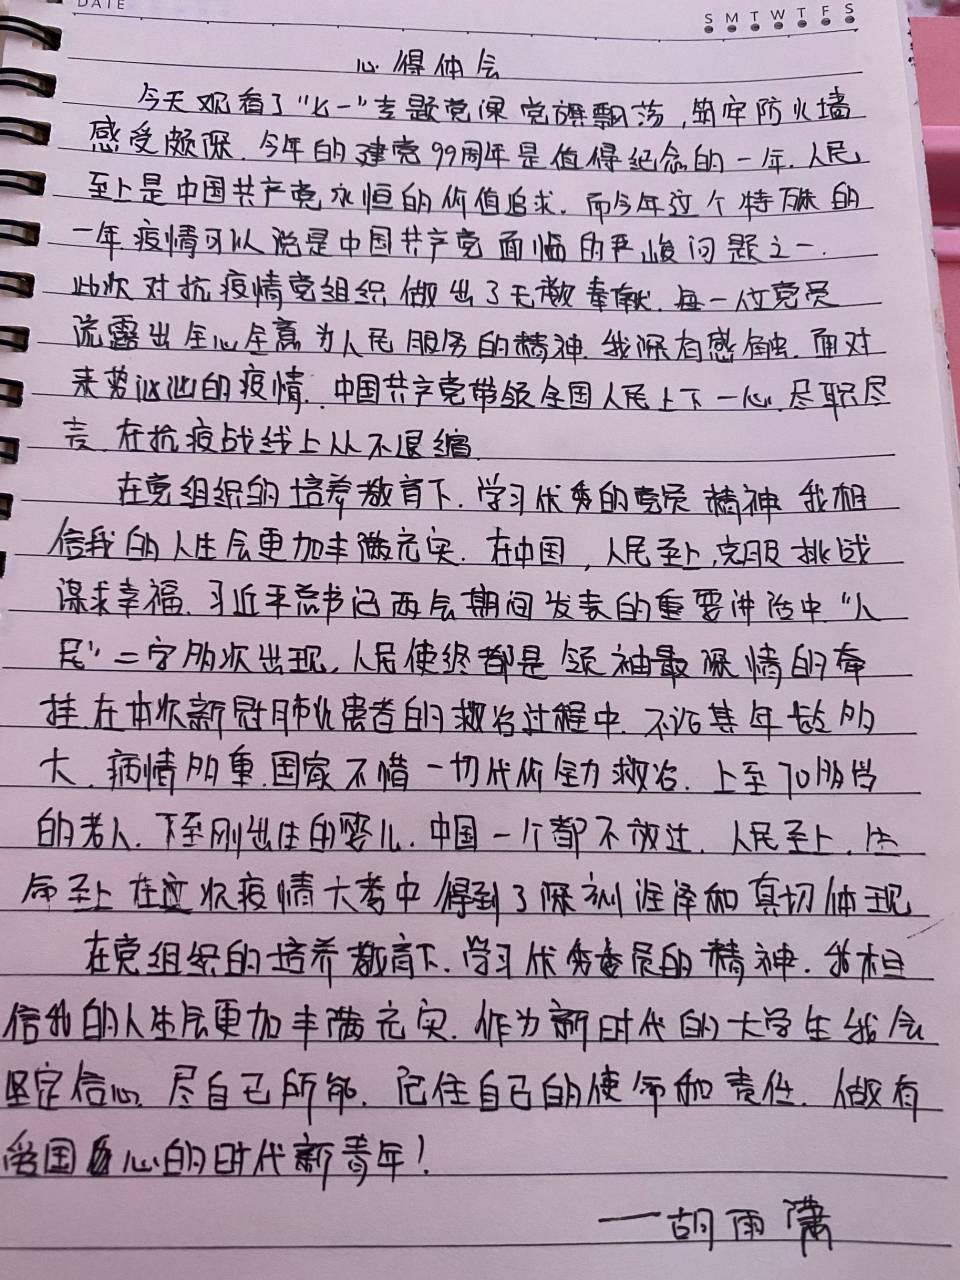 DATE
S M T W T F S
心得体会
今天观看了“七一”专题党课党旗飘荡，筑牢防火墙
感受颇深.今年的建党99周年是值得纪念的一年.人民
至上是中国共产党永恒的价值追求.而今年这个特殊的
一年疫情可以说是中国共产党面临的严峻问题之一.
此次对抗疫情党组织做出了无数奉献.每一位党员
流露出全心全意为人民服务的精神.我深有感触.面对
来势汹汹的疫情.中国共产党带领全国人民上下一心.尽职尽
责.在抗疫战线上从不退缩.
在党组织的培养教育下.学习优秀的党员精神我相
信我的人生会更加丰满充实.在中国，人民至上,克服挑战
谋求幸福.习近平总书记两会期间发表的重要讲话中“人
民”二字多次出现.人民使终都是领袖最深情的牵
挂.在本次新冠肺炎患者的救治过程中.不论其年龄多
大.病情多重.国家不惜一切代价全力救治.上至70多岁
的老人.下至刚出生的婴儿.中国一个都不放过.人民至上.生
命至上在这次疫情大考中得到了深刻诠释和真切体现
在党组织的培养教育下.学习优秀党员的精神.我相
信我的人生会更加丰满充实.作为新时代的大学生我会
坚定信心.尽自己所能.记住自己的使命和责任.做有
爱国心的时代新青年!
——胡雨潇